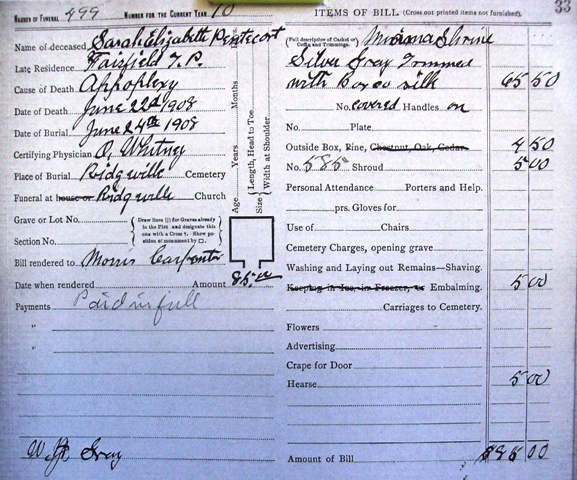 NUMBER OF FUNERAL 499 NUMBER FOR THE CURRENT YEAR 10
Name of deceased Sarah Elizabeth Pentecost
Late Residence Fairfield T.P.
Cause of Death Appoplexy
Date of Death June 22d 1908
Date of Burial June 24th 1908
Certifying Physician O, Whitney
Place of Burial Ridgville Cemetery
Funeral at house or Ridgville Church
Grave or Lot No.
Section No.
Draw lines for Graves already in the Plot and designate this one with a Cross †. Show position of monument by □.
Age Years Months
Size Length, Head to Toe. Width at Shoulder
Bill rendered to Morris Carpenter
Date when rendered Amount 85.00
Payments Paid in full
"
"
W. Gray
ITEMS OF BILL (Cross out printed items not furnished). 33
(Full description of Casket or Coffin and Trimmings. Shrine
Silver Gray Trimmed
with Box silk 65 50
No. covered Handles on
No. Plate
Outside Box, Pine, Chestnut, Oak, Cedar. 4 50
No. 585 Shroud 5 00
Personal Attendance Porters and Help.
prs. Gloves for
Use of Chairs
Cemetery Charges, opening grave
Washing and Laying out Remains—Shaving.
Keeping in Ice, in Freezer, or Embalming. 5 00
Carriages to Cemetery.
Flowers
Advertising
Crape for Door
Hearse 5 00
Amount of Bill 00